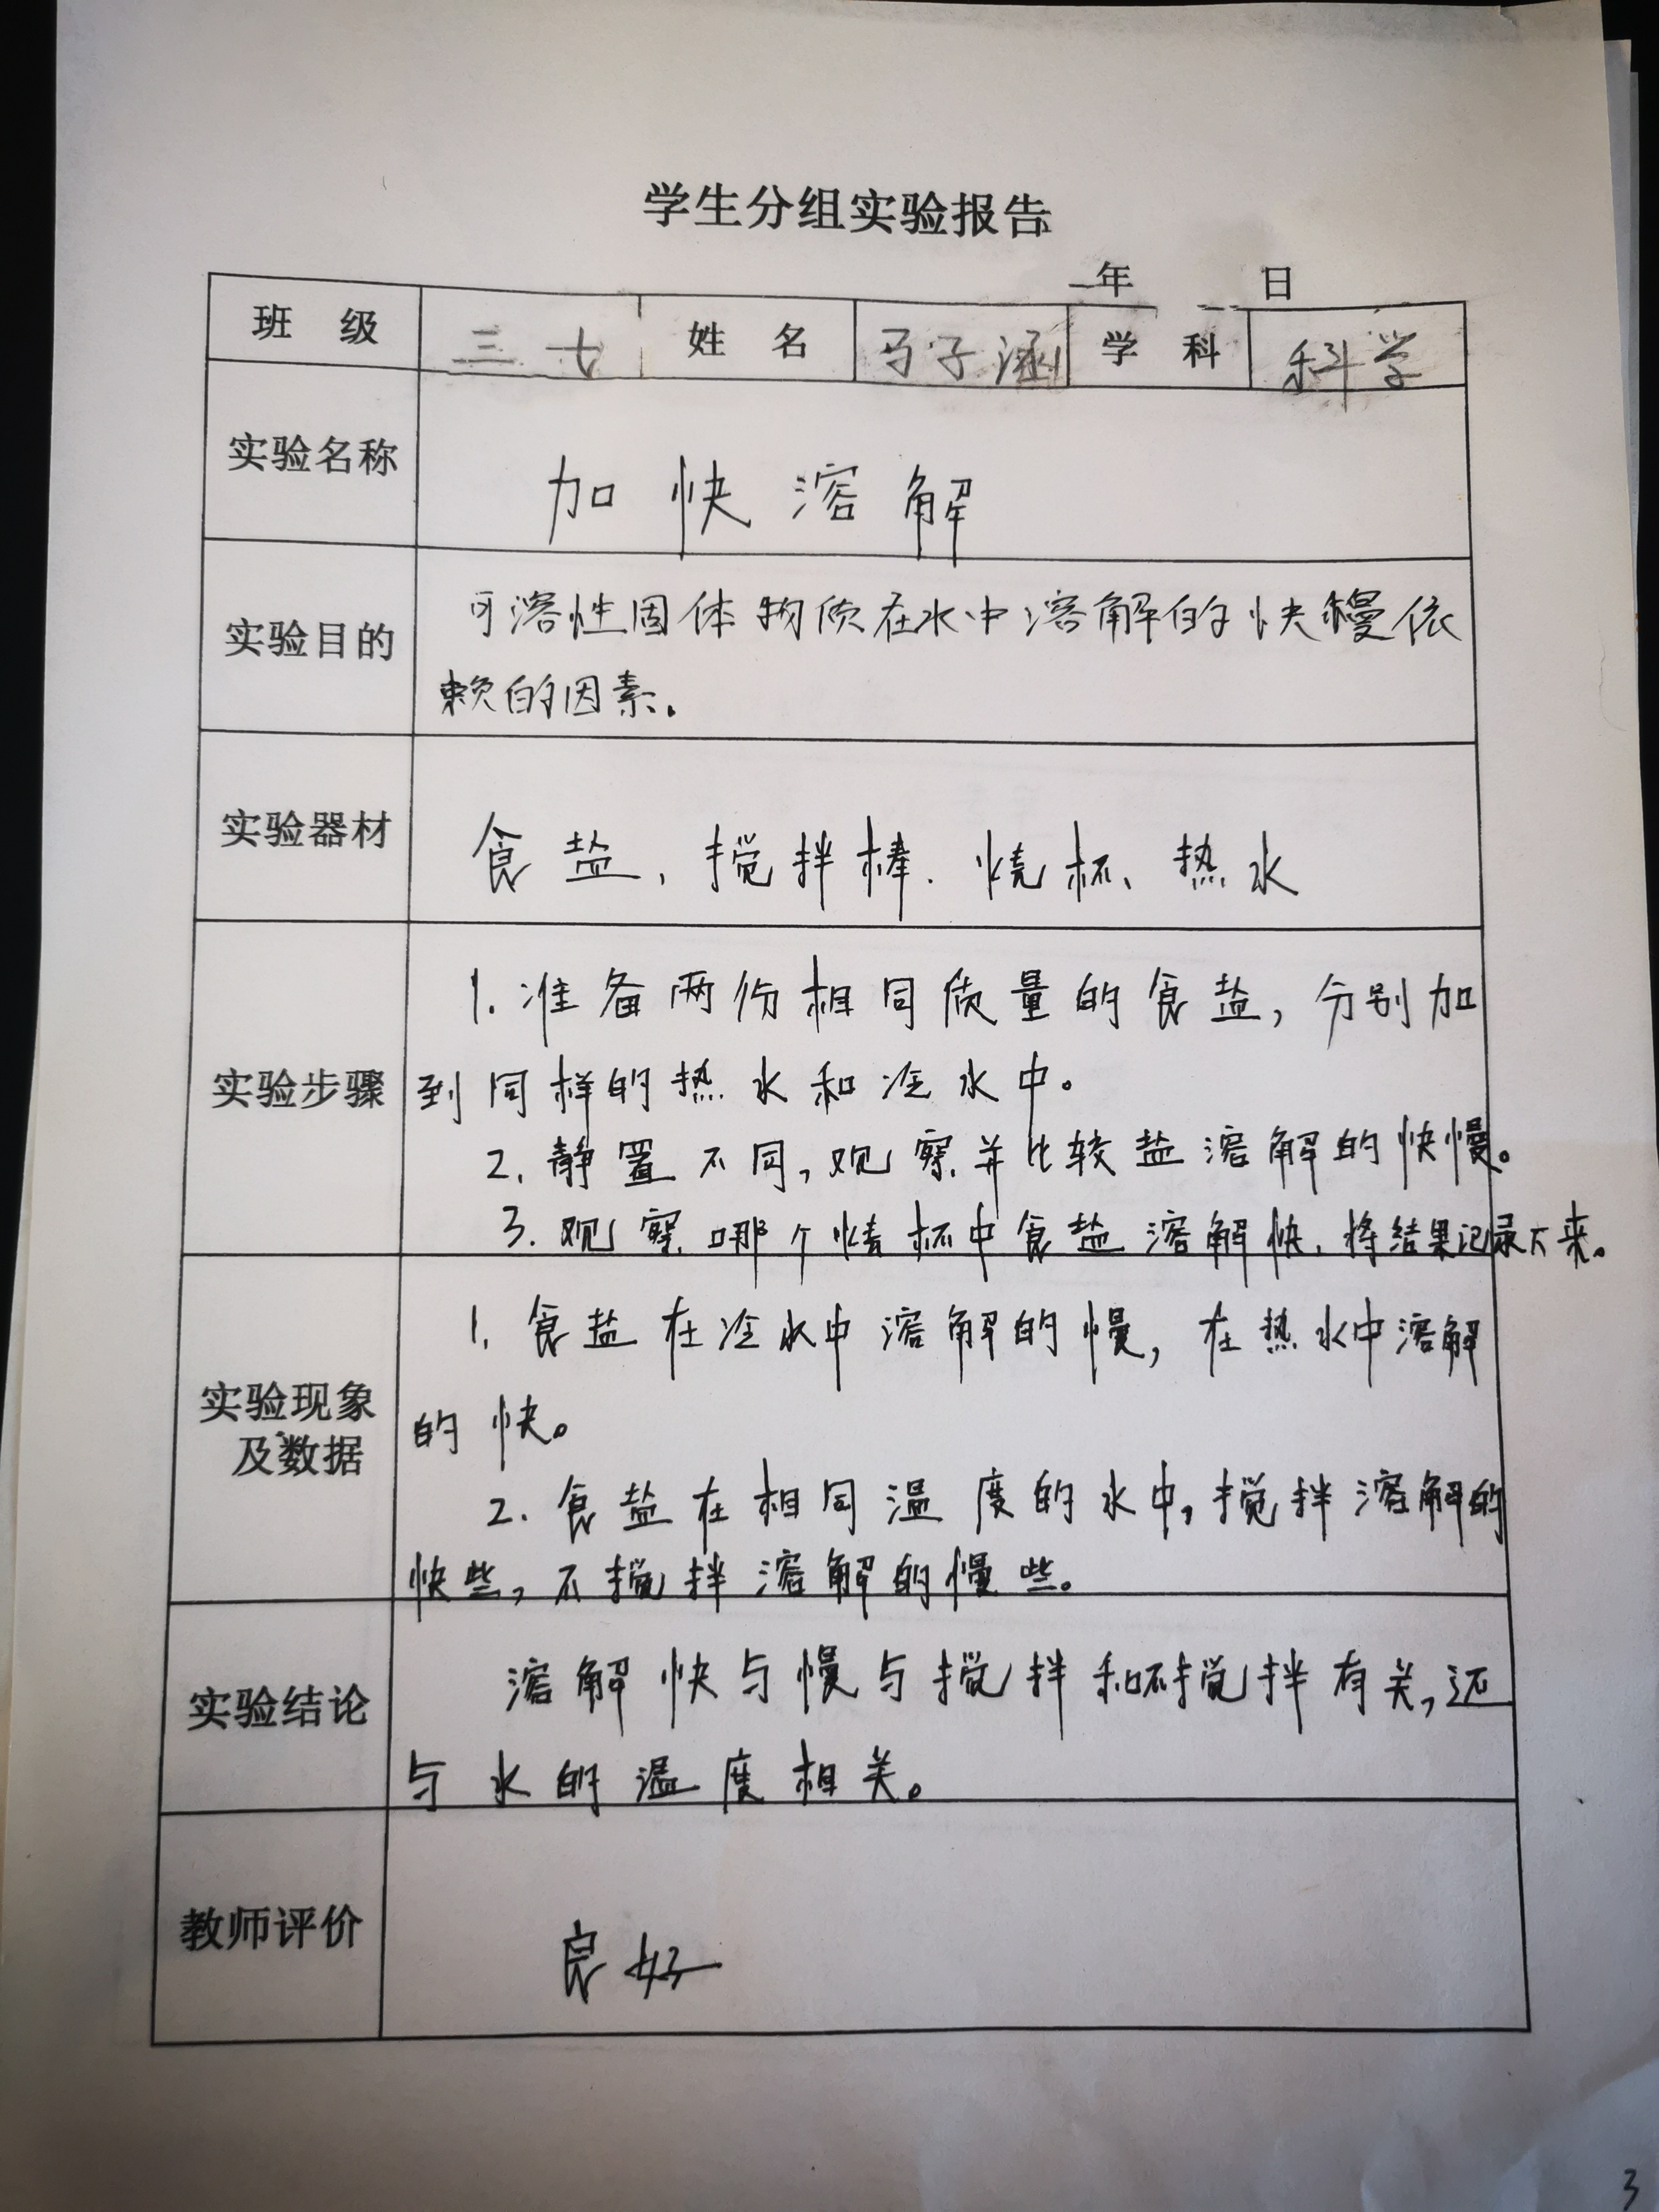 学生分组实验报告
年 日
班 级 三 七 姓 名 马子涵 学 科 科学
实验名称 加快溶解
实验目的 可溶性固体物质在水中溶解的快慢依
赖的因素。
实验器材 食盐、搅拌棒、烧杯、热水
实验步骤 1.准备两份相同质量的食盐,分别加
到同样的热水和冷水中。
2.静置不同,观察并比较盐溶解的快慢。
3.观察哪个烧杯中食盐溶解快,将结果记录下来。
实验现象
及数据
1.食盐在冷水中溶解的慢,在热水中溶解
的快。
2.食盐在相同温度的水中,搅拌溶解的
快些,不搅拌溶解的慢些。
实验结论 溶解快与慢与搅拌和不搅拌有关,还
与水的温度相关。
教师评价 良好
3